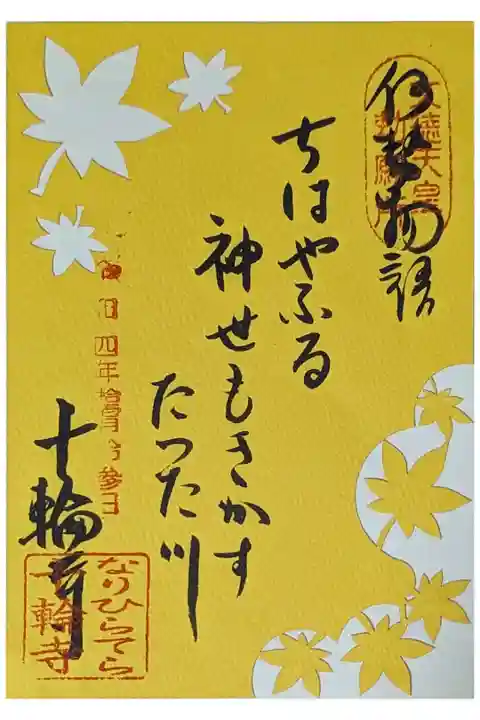 伊勢物語
文徳天皇
勅願
ちはやふる
神世もきかす
たつた川
四年
参日
十輪寺
なりひらてら
十輪寺